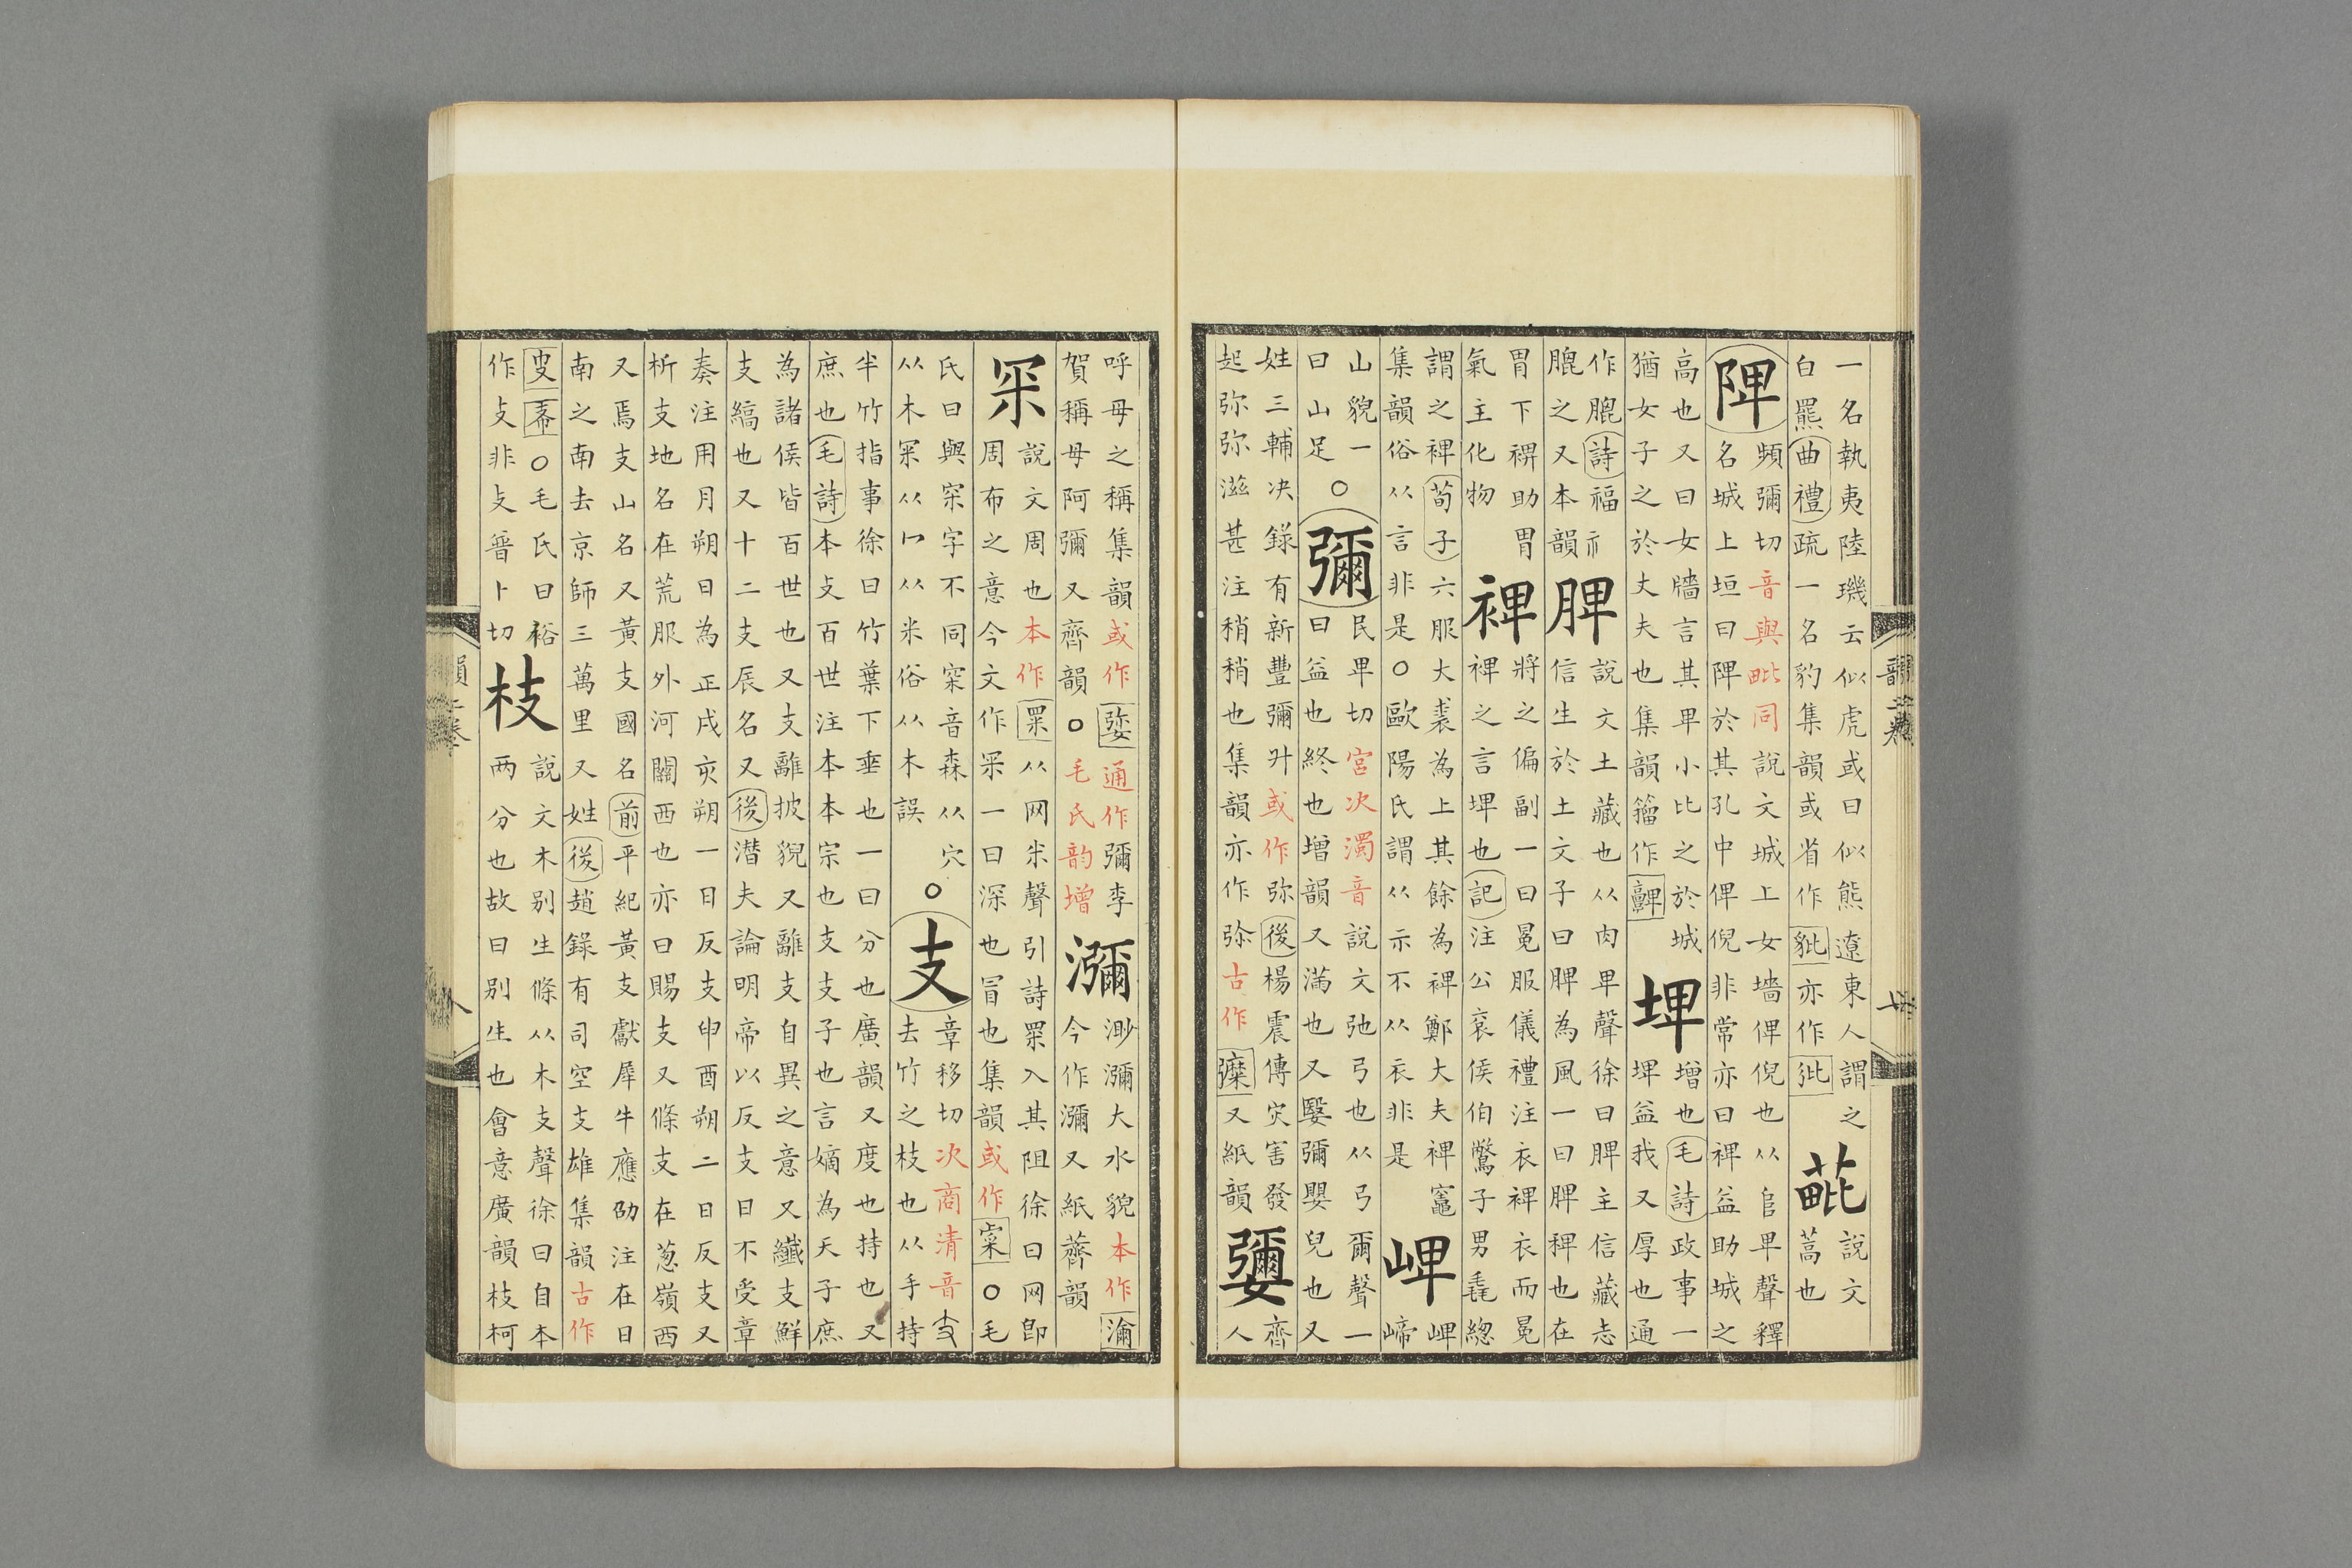 一名執夷陸璣云似虎或曰似熊遼東人謂之
白羆曲禮疏一名豹集韻或省作豼亦作
說文
蒿也
陴
頻彌切音與毗同說文城上女墻俾倪也从𨸏卑聲釋
名城上垣曰陴於其孔中俾倪非常亦曰裨益助城之
高也又曰女牆言其卑小比之於城
猶女子之於丈夫也集韻籀作𩫫
埤
增也毛詩政事一
埤益我又厚也通
作膍詩福
膍之又本韻
脾
說文土藏也从肉卑聲徐曰脾主信藏志
信生於土文子曰脾為風一曰脾稗也在
胃下裨助胃
氣主化物
裨
將之偏副一曰冕服儀禮注衣裨衣而冕
裨之言埤也記注公衮侯伯鷩子男毳緫
謂之裨荀子六服大裘為上其餘為裨鄭大夫裨竈
集韻俗从言非是○歐陽氏謂从示不从衣非是
崥
崥
崹
山貌一
曰山足
○
彌
民卑切宮次濁音說文弛弓也从弓爾聲一
曰益也終也增韻又滿也又嫛彌嬰兒也又
姓三輔决錄有新豐彌升或作弥後楊震傳灾害發
起弥弥滋甚注稍稍也集韻亦作弥古作又紙韻
㜷
齊
人
呼母之稱集韻或作通作彌李
賀稱母阿彌又齊韻○毛氏韵增
瀰
渺瀰大水貌本作濔
今作瀰又紙薺韻
罙
說文周也本作从网米聲引詩罙入其阻徐曰网即
周布之意今文作罙一曰深也冒也集韻或作○毛
氏曰與突字不同突音森从穴
从木罙从冖从米俗从木誤
○
支
章移切次商清音
去竹之枝也从手持
半竹指事徐曰竹葉下垂也一曰分也廣韻又度也持也又
庶也毛詩本支百世注本本宗也支支子也言嫡為天子庶
為諸侯皆百世也又支離披貌又離支自異之意又纖支鮮
支縞也又十二支辰名又後潛夫論明帝以反支日不受章
奏注用月朔日為正戌亥朔一日反支申酉朔二日反支又
析支地名在荒服外河關西也亦曰賜支又條支在葱嶺西
又焉支山名又黃支國名前平紀黃支獻犀牛應劭注在日
南之南去京師三萬里又姓後趙錄有司空支雄集韻古作
○毛氏曰裕
作攴非攴普卜切
枝
說文木别生條从木支聲徐曰自本
两分也故曰别生也會意廣韻枝柯